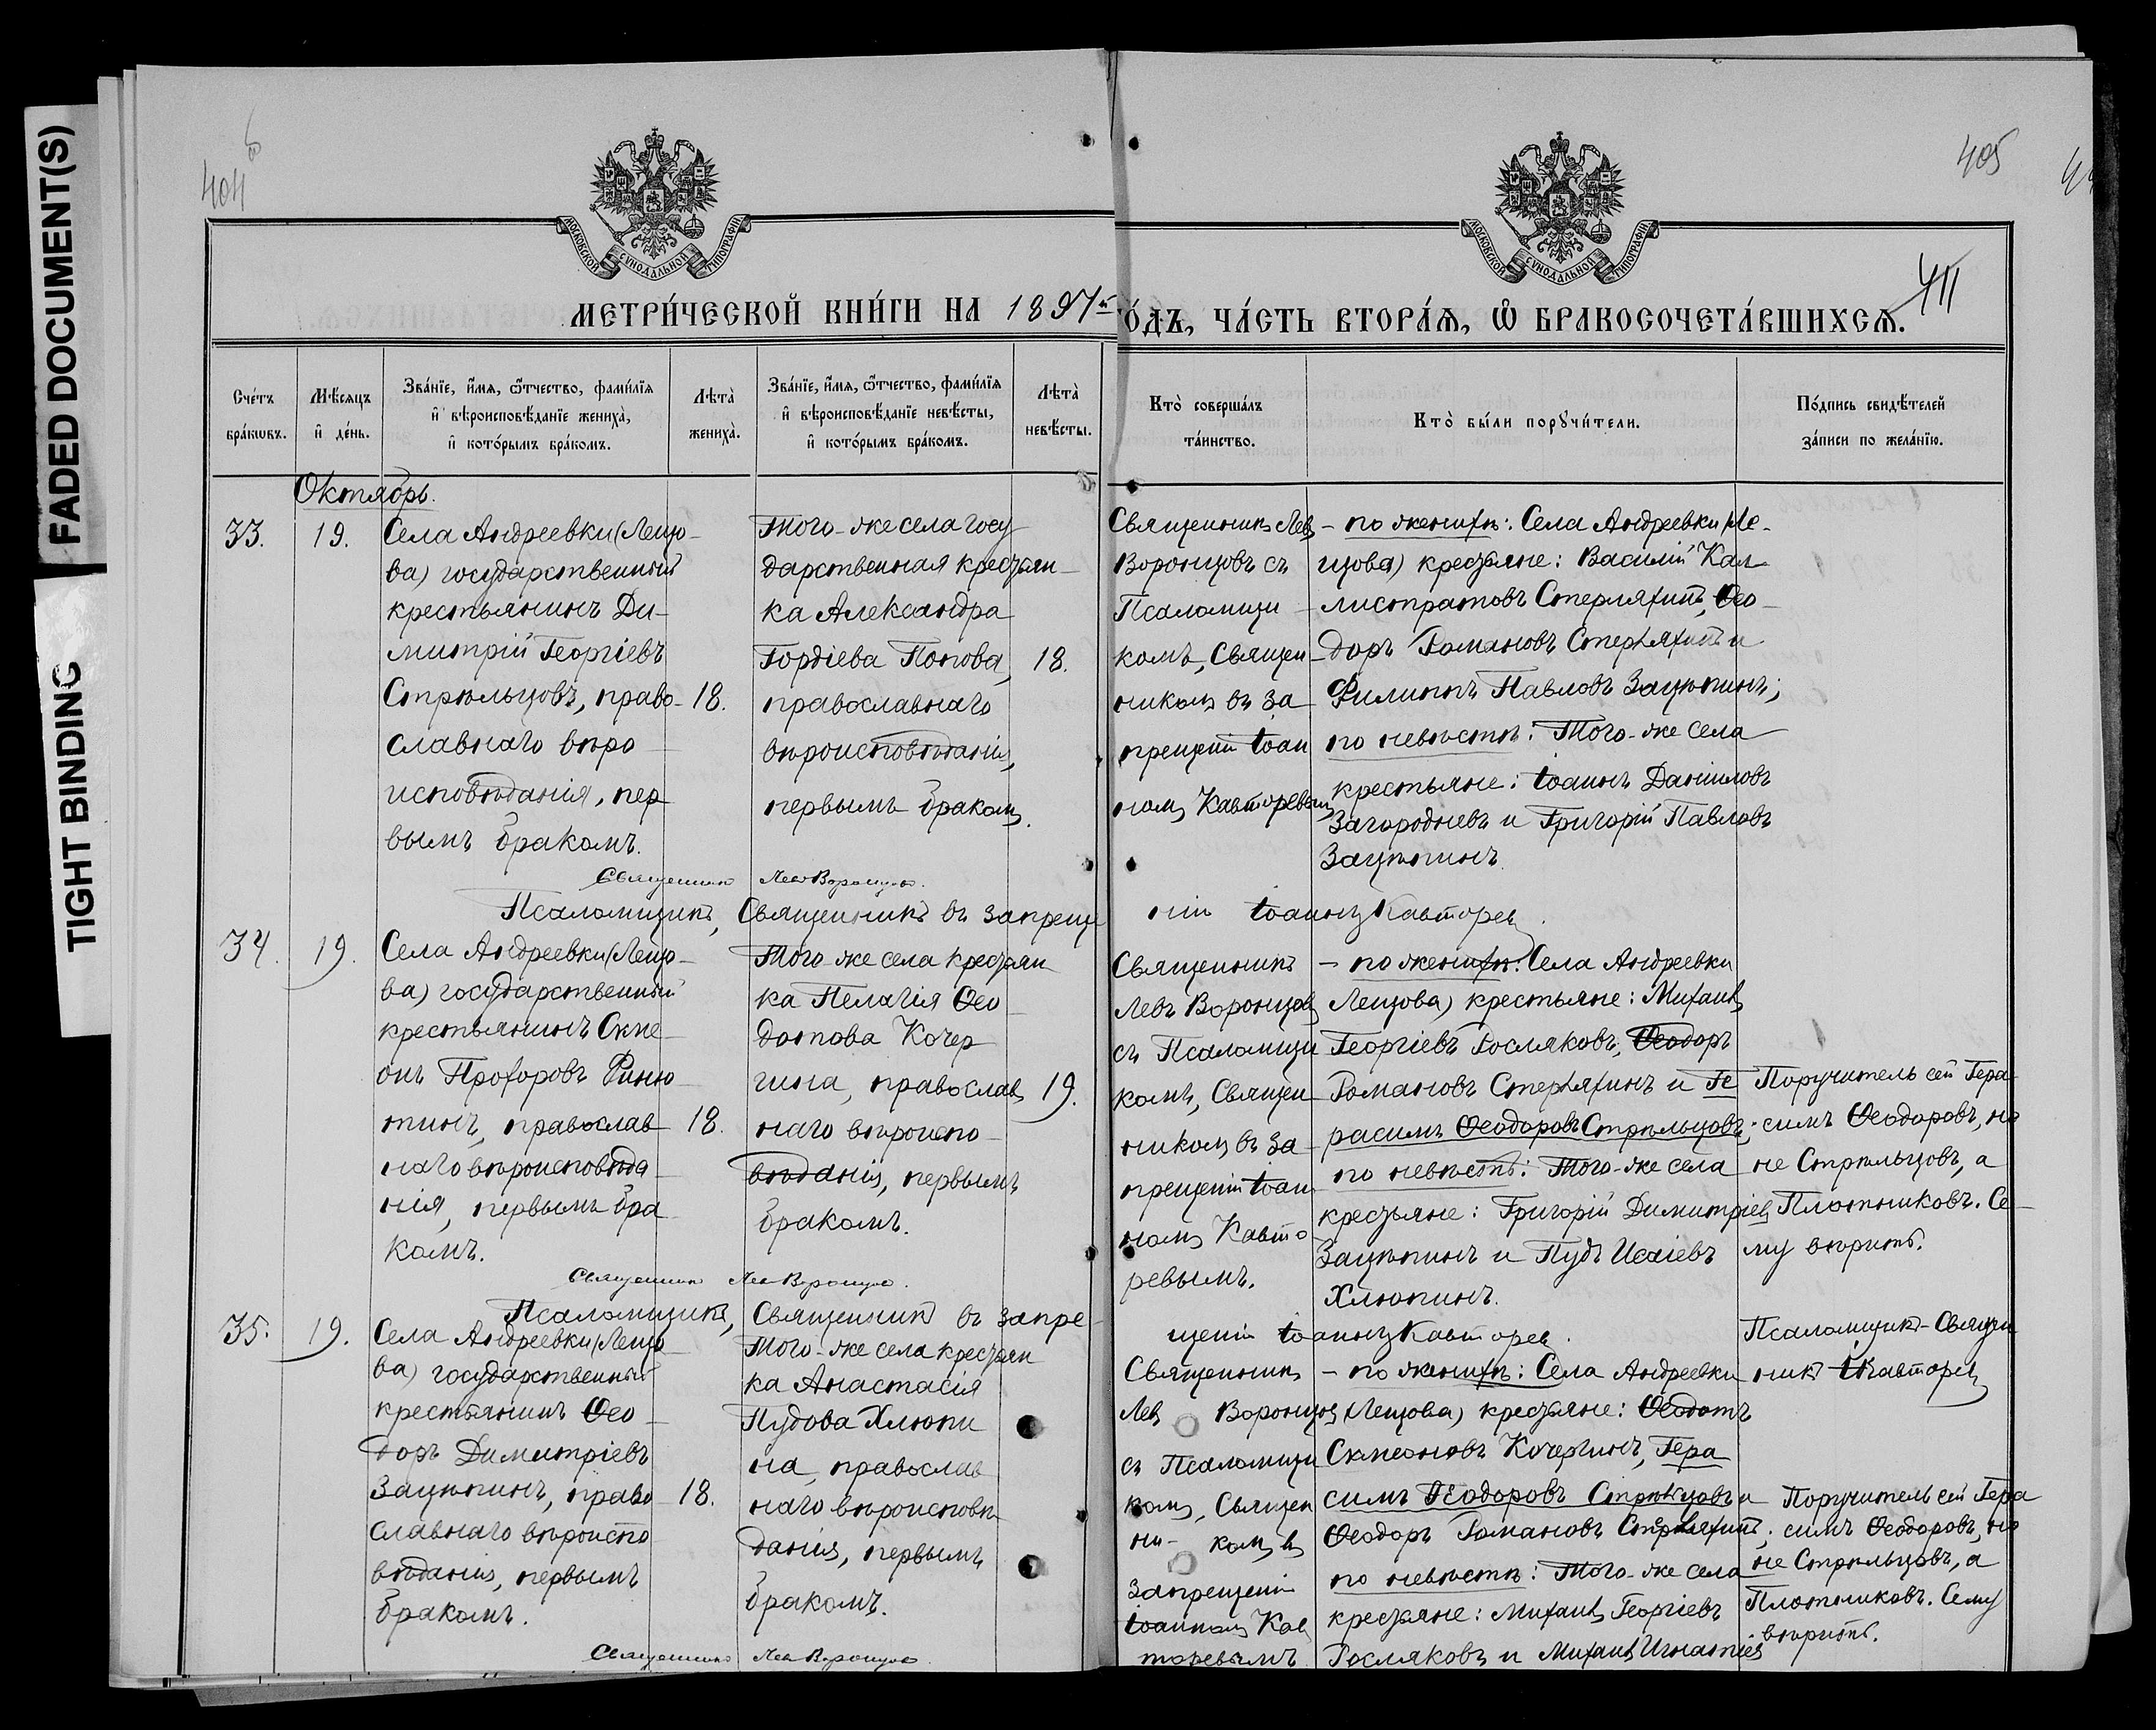 FADED DOCUMENT(S)
TIGHT BINDING
404
405
411
МОСКОВСКОЙ СѴНОДАЛЬНОЙ ТИПОГРАФІИ
МОСКОВСКОЙ СѴНОДАЛЬНОЙ ТИПОГРАФІИ
МЕТРИ́ЧЕСКОЙ КНИ́ГИ НА 1897й
ГО́ДЪ, ЧА́СТЬ ВТОРА́Ѧ, Ѽ БРАКОСОЧЕТА́ВШИХСѦ.
Сче́тъ
бра́кѡвъ.
Мѣ́сяцъ
и҆ де́нь.
Зва́нїе, и҆́мѧ, ѻ҆́тчество, фами́лїѧ
и҆ вѣроисповѣ́данїе жениха̀,
и҆ кото́рымъ бра́комъ.
Лѣта̀
жениха̀.
Зва́нїе, и҆́мѧ, ѻ҆́тчество, фами́лїѧ
и҆ вѣроисповѣ́данїе невѣ́сты,
и҆ кото́рымъ бра́комъ.
Лѣта̀
невѣ́сты.
Кто̀ соверша́лъ
та́инство.
Кто̀ бы́ли порꙋчи́тели.
По́дпись свидѣ́телей
за́писи по жела́нїю.
Октябрь.
33.
19.
Села Андреевки (Лещо-
ва) государственный
крестьянинъ Ди-
митрій Георгіевъ
Стрѣльцовъ, право-
славнаго вѣро-
исповѣданія, пер-
вымъ бракомъ.
18.
Того-же села госу-
дарственная крестьян-
ка Александра
Гордіева Попова,
православнаго
вѣроисповѣданія,
первымъ бракомъ.
18.
Священникъ Левъ
Воронцовъ съ
Псаломщи-
комъ, Священ-
никомъ въ за-
прещеніи Іоан-
номъ Кавторевымъ
- по женихѣ: Села Андреевки (Ле-
щова) крестьяне: Василій Кал-
листратовъ Стерляхинъ, Ѳео-
доръ Романовъ Стерляхинъ и
Филиппъ Павловъ Зацѣпинъ;
по невѣстѣ: Того-же села
крестьяне: Іоаннъ Даніиловъ
Загородневъ и Григорій Павловъ
Зацѣпинъ.
Священникъ Левъ Воронцовъ.
Псаломщикъ, Священникъ въ запреще-
ніи Іоаннъ Кавторевъ.
34.
19.
Села Андреевки (Лещо-
ва) государственный
крестьянинъ Симе-
онъ Прохоровъ Финю-
тинъ, православ-
наго вѣроисповѣда-
нія, первымъ бра-
комъ.
18.
Того-же села крестьян-
ка Пелагія Ѳео-
дотова Кочер-
гина, православ-
наго вѣроиспо-
вѣданія, первымъ
бракомъ.
19.
Священникъ
Левъ Воронцовъ
съ Псаломщи-
комъ, Священ-
никомъ въ за-
прещеніи Іоан-
номъ Кавто-
ревымъ.
- по женихѣ: Села Андреевки
Лещова) крестьяне: Михаилъ
Георгіевъ Росляковъ, Ѳеодоръ
Романовъ Стерляхинъ и Ге-
расимъ Ѳеодоровъ Стрѣльцовъ;
по невѣстѣ: Того-же села
крестьяне: Григорій Димитріевъ
Зацѣпинъ и Пудъ Исаіевъ
Хлюпинъ.
Поручитель сей Гера-
симъ Ѳеодоровъ, но
не Стрѣльцовъ, а
Плотниковъ. Се-
му вѣрить.
Священникъ Левъ Воронцовъ.
Псаломщикъ, Священникъ въ запре-
щеніи Іоаннъ Кавторевъ.
Псаломщикъ-Священ-
никъ І. Кавторевъ
35.
19.
Села Андреевки (Лещо-
ва) государственный
крестьянинъ Ѳео-
доръ Димитріевъ
Зацѣпинъ, право-
славнаго вѣроиспо-
вѣданія, первымъ
бракомъ.
18.
Того-же села крестьян-
ка Анастасія
Пудова Хлюпи-
на, православ-
наго вѣроисповѣ-
данія, первымъ
бракомъ.
Священникъ
Левъ Воронцовъ
съ Псаломщи-
комъ, Священ-
ни- комъ въ
запрещеніи
Іоанномъ Кав-
торевымъ
- по женихѣ: Села Андреевки
(Лещова) крестьяне: Ѳеодотъ
Симеоновъ Кочергинъ, Гера-
симъ Ѳеодоровъ Стрѣльцовъ и
Ѳеодоръ Романовъ Стерляхинъ;
по невѣстѣ: Того-же села
крестьяне: Михаилъ Георгіевъ
Росляковъ и Михаилъ Игнатіевъ
Поручитель сей Гера-
симъ Ѳеодоровъ, но
не Стрѣльцовъ, а
Плотниковъ. Сему
вѣрить.
Священникъ Левъ Воронцовъ.